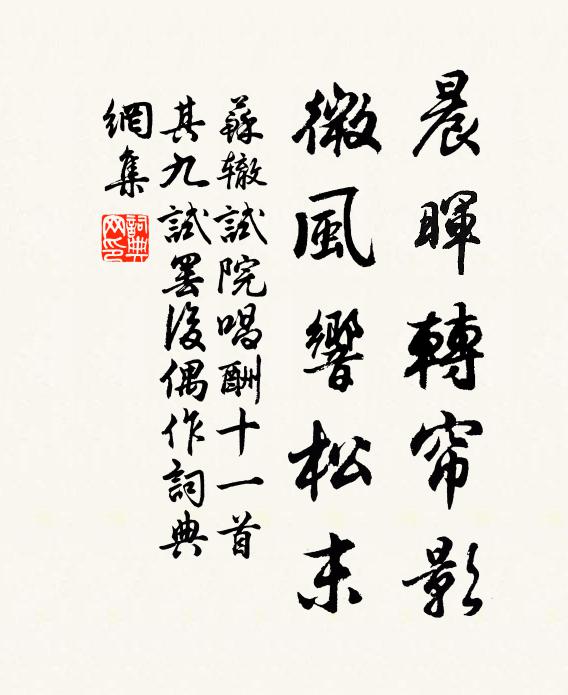 晨暉轉帘影
微風響松末
蘇辙試院唱酬十一首
其九試罢後偶作詞典
網集
詞典网印